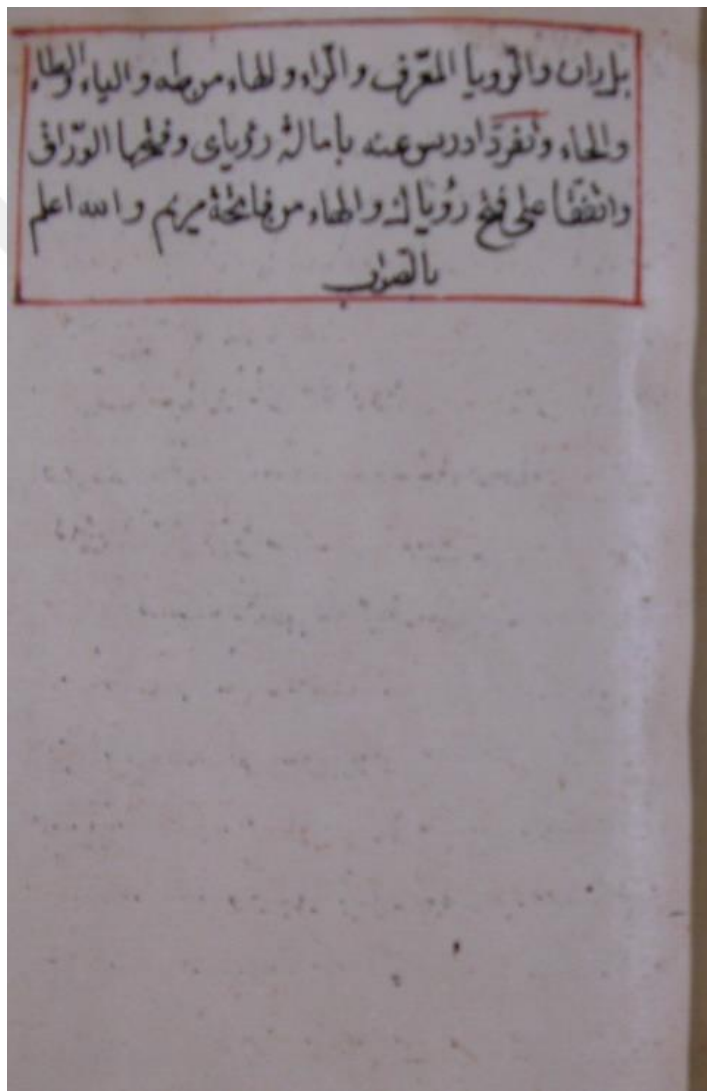 بل ران والرويا المعرّف والرّاء والهاء من طه والياء والطاء
والحاء وتفرّد ادريس عنه بامالة رؤياى وفتحها الورّاق
واتفقا على فتح رؤياك والهاء من فاتحة مريم والله اعلم
بالصواب